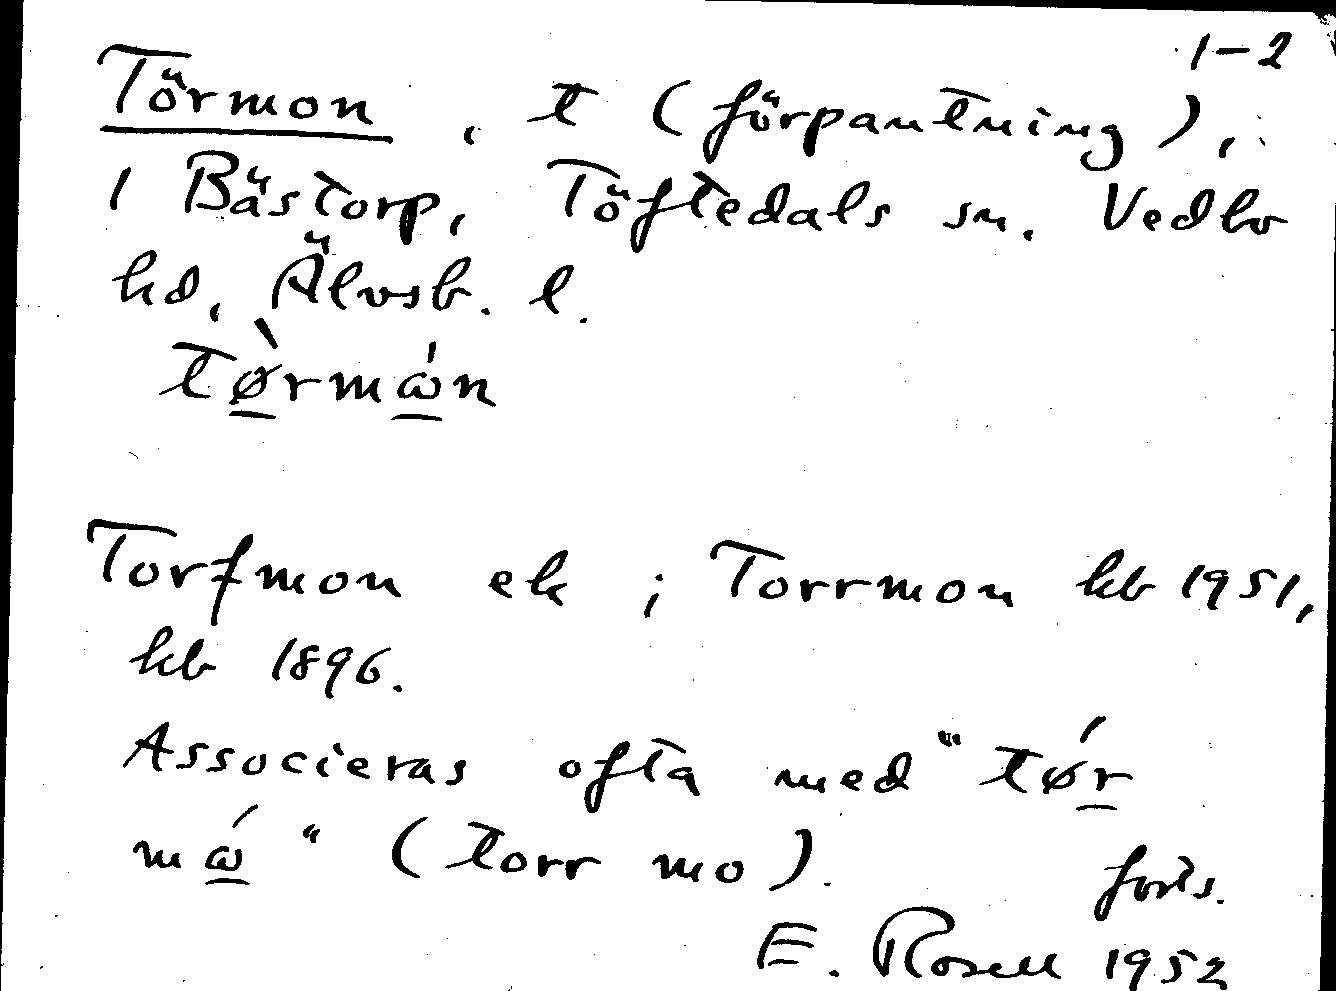 1-2
Törmon, t (förpantning),
i Bästorp, Töftedals sn. Vedbo
hd, Älvsb. l.
tø̠̀rmώ̠n
Torfmon ek ; Torrmon kb 1951,
hb 1896.
Associeras ofta med "tǿr̠
mώ̠" (torr mo).
forts.
E. Rosell 1952